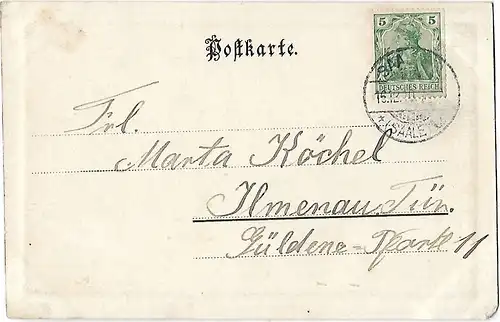 Postkarte.
5 5
DEUTSCHES REICH
(SAALE)
Frl.
Marta Köchel
Ilmenau Tür.
Güldene-Pforte 11